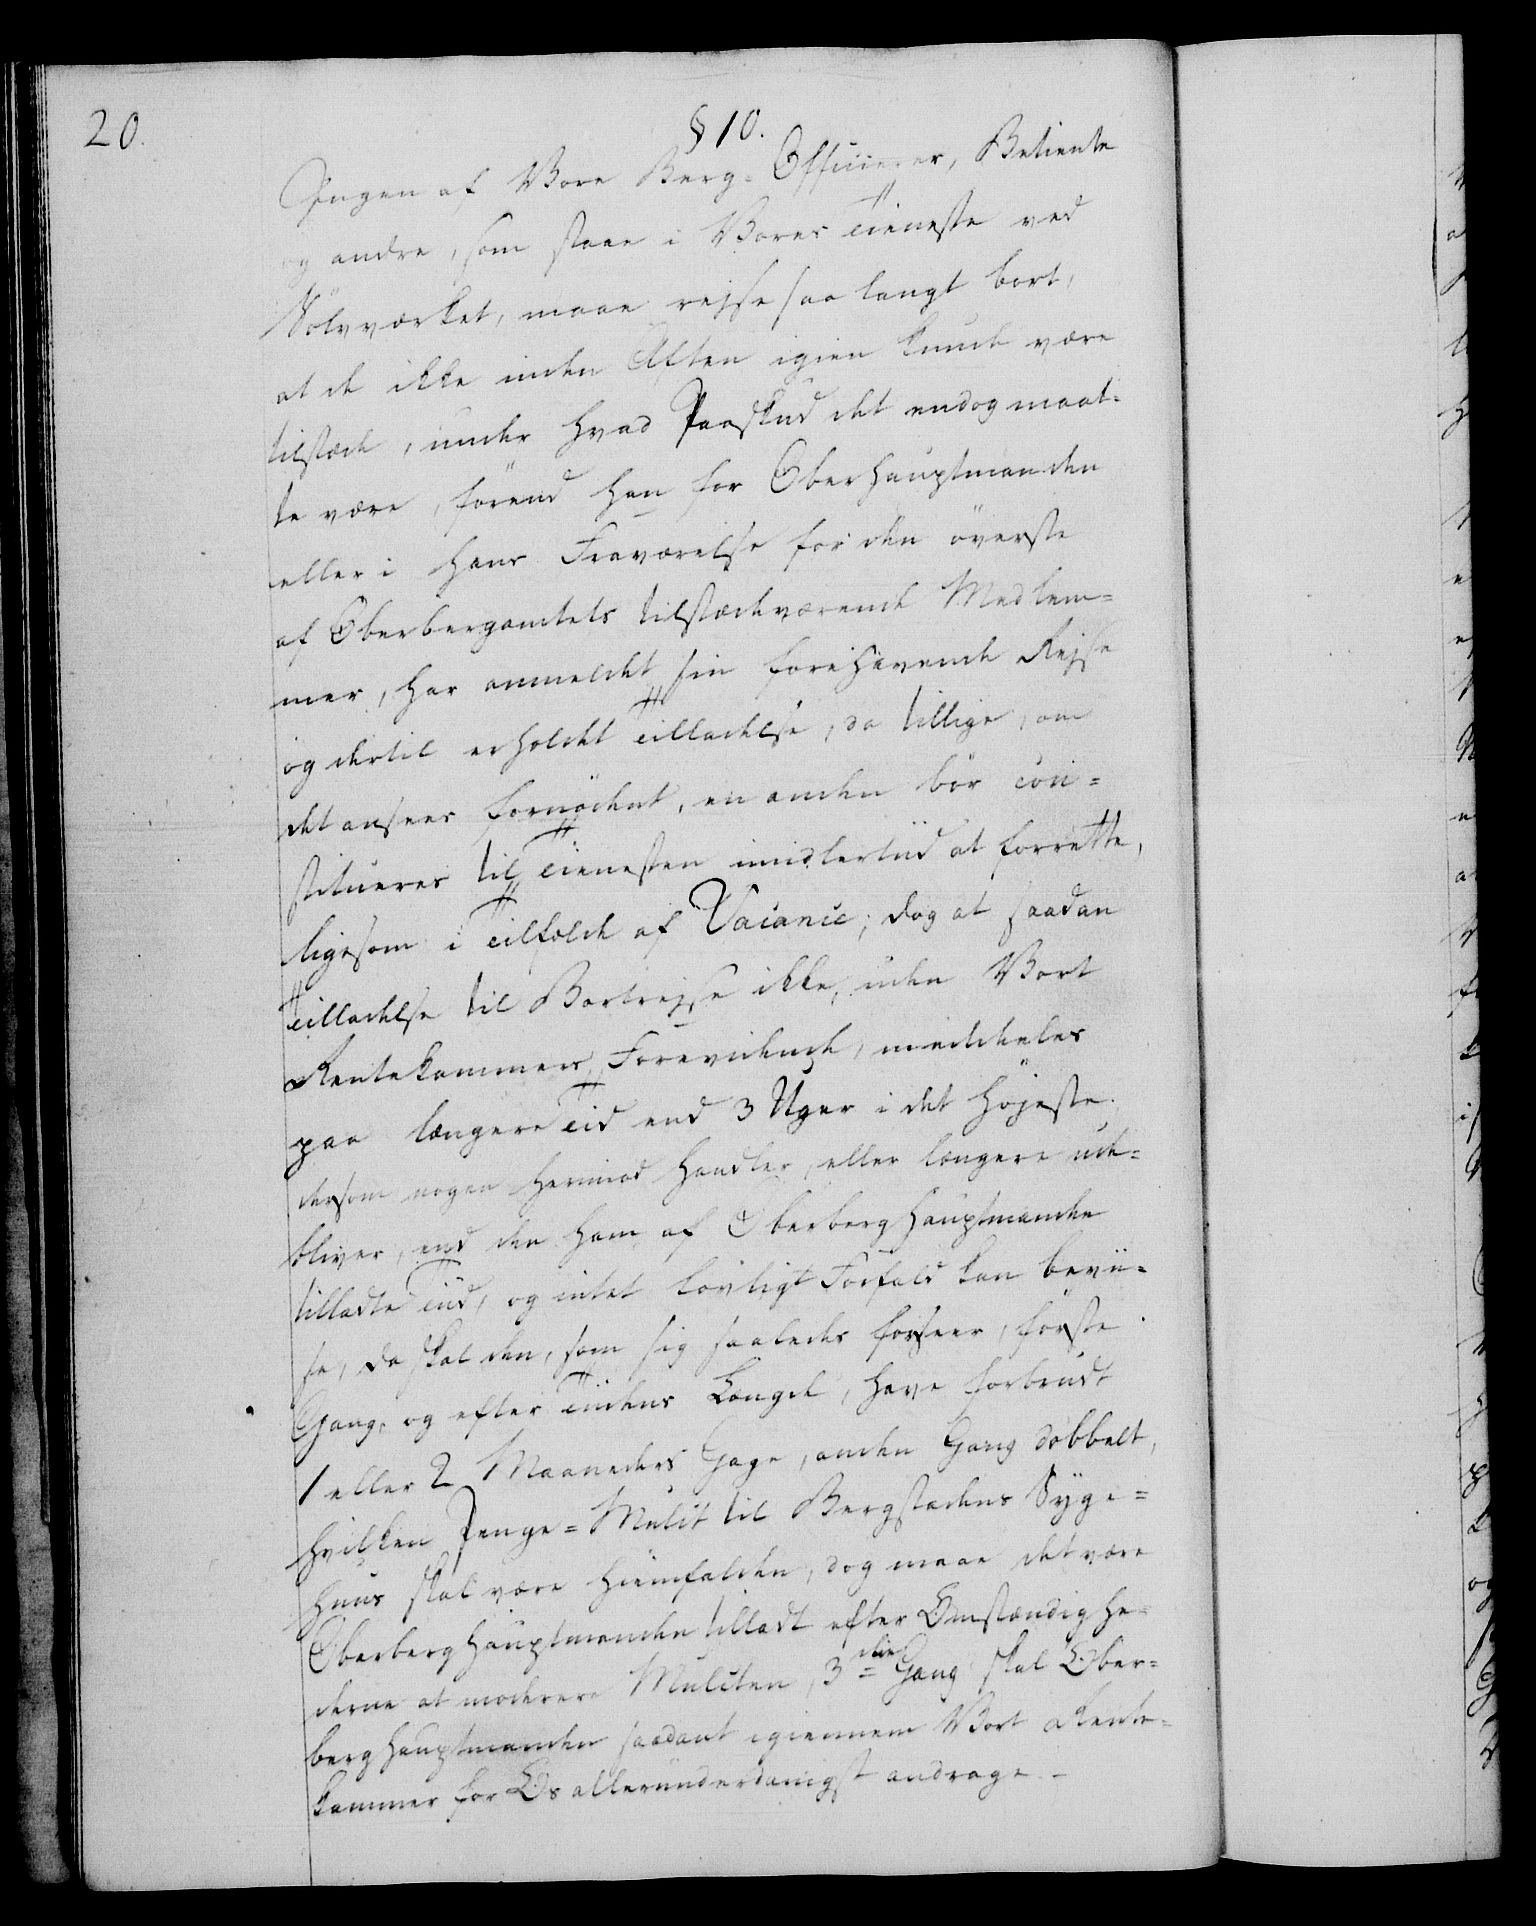 20.
§ 10.
Ingen af Vore Berg-Officierer, Betiente
og andre, som staae i Vores Tieneste ved
Sølvværket, maae rejse saa langt bort,
at de ikke inden Aften igien kunde være
tilstæde, under hvad Paaskud det endog maat-
te være, førend han for Oberhauptmanden
eller i hans Fraværelse for den øverste
af Oberbergamtets tilstædeværende Medlem-
mer, har anmeldet sin forehavende Rejse
og dertil erholdet Tilladelse, da tillige, om
det ansees fornødent, en anden bør con-
stitueres til Tienesten imidlertiid at forrette,
ligesom i Tilfælde af Vacance; dog at saadan
Tilladelse til Bortrejse ikke, uden Vort
Rentekammers Forevidende, meddeles
paa længere Tid end 3 Uger i det højeste.
dersom nogen herimod handler, eller længere ude-
bliver, end den ham af Oberberghauptmanden
tilladte Tiid, og intet lovligt Forfald kan bevii-
se, da skal den, som sig saaledes forseer, første
Gang, og efter Tiidens Længde, have forbrudt
1 eller 2 Maaneders Gage, anden Gang dobbelt,
hvilken Penge-Mulct til Bergstadens Syge-
huus skal være hiemfalden, dog maae det være
Oberberghauptmanden tilladt efter Omstændighe-
derne at moderere Mulcten, 3die Gang skal Ober-
berghauptmanden saadant igiennem Vort Rente-
kammer for Os allerunderdanigst andrage. –